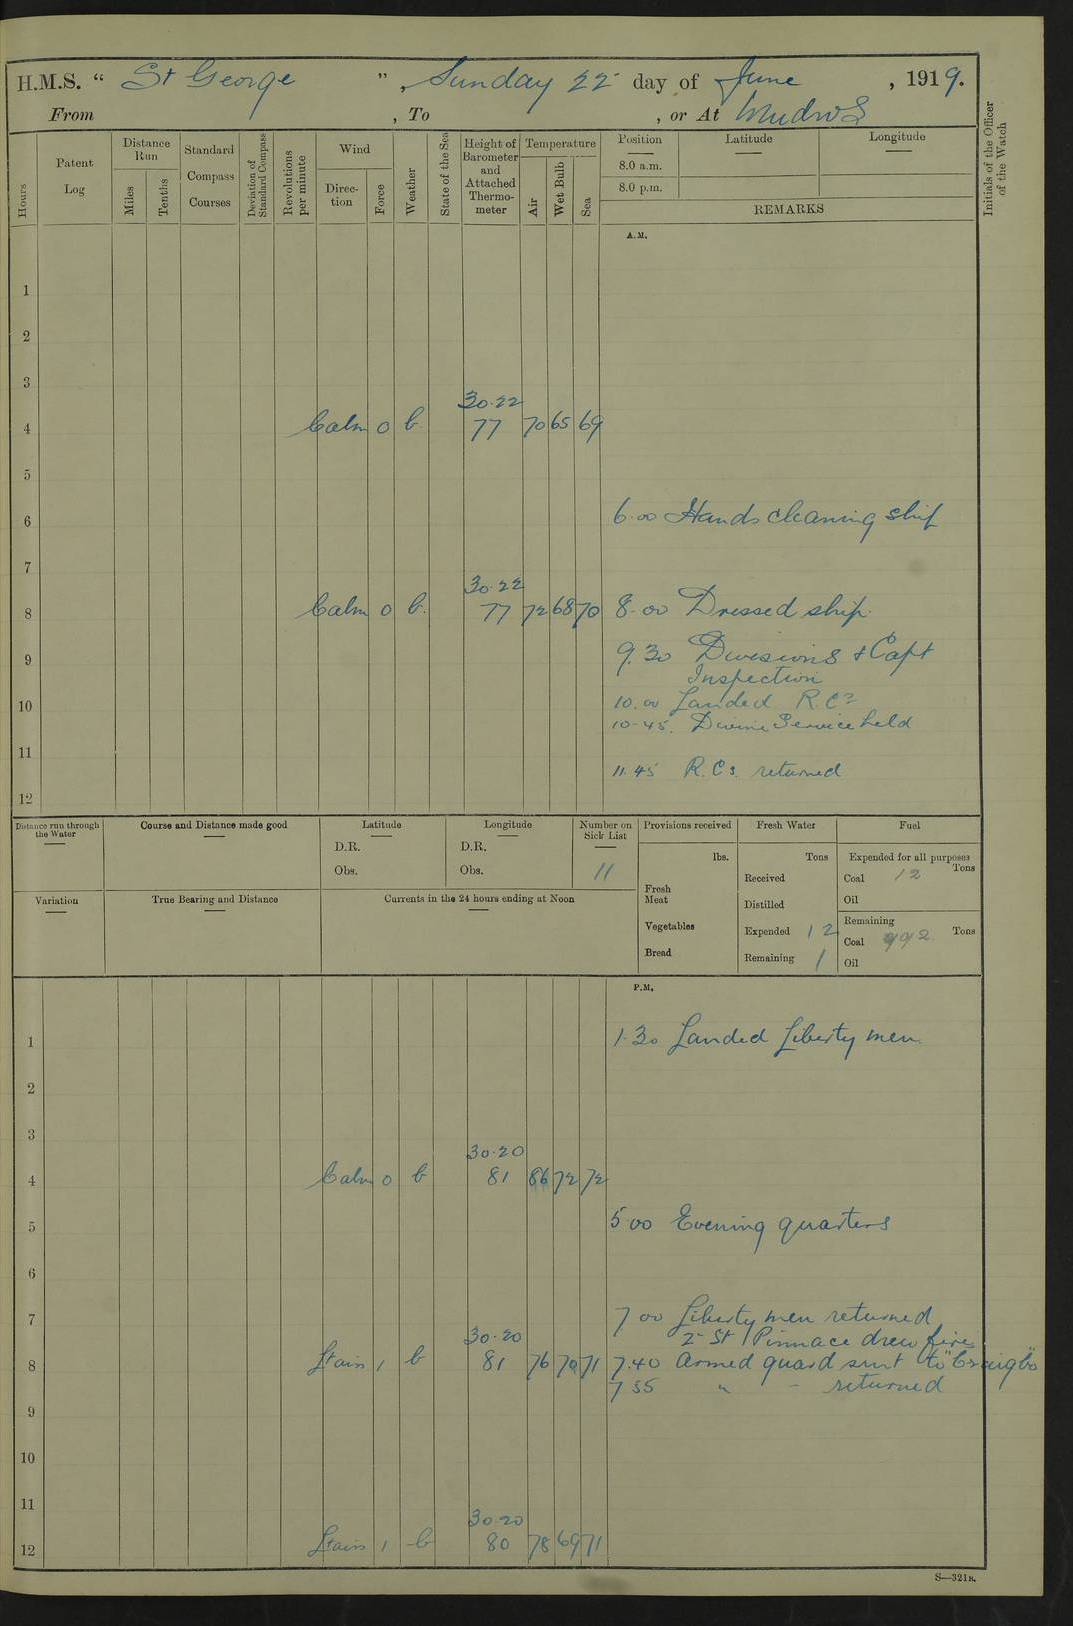 H.M.S. " St George ", Sunday 22 day of June , 1919.
From , To , or At Mudros
Hours
Patent Log
Distance Run
Miles
Tenths
Standard Compass Courses
Deviation of Standard Compass
Revolutions per minute
Wind
Direc- tion
Force
Weather
State of the Sea
Height of Barometer and Attached Thermo- meter
Temperature
Air
Wet Bulb
Sea
Position
Latitude
Longitude
8.0 a.m.
8.0 p.m.
REMARKS
Initials of the Officer of the Watch
A.M.
1
2
3
30.22
4 Calm 0 b. 77 70 65 69
5
6 6.00 Hands cleaning ship
7
30.22
8 Calm 0 b. 77 72 68 70 8.00 Dressed ship.
9 9.30 Divisions & Capt
Inspection
10 10.00 Landed R.Cs
10.45. Divine Service held
11
11.45 R.Cs. returned
12
Distance run through the Water
Course and Distance made good
Latitude
D.R.
Obs.
Longitude
D.R.
Obs.
Number on Sick List
11
Provisions received
lbs.
Fresh Meat
Vegetables
Bread
Fresh Water
Tons
Received
Distilled
Expended 12
Remaining 1
Fuel
Expended for all purposes
Tons
Coal 12
Oil
Remaining
Coal 992 Tons
Oil
Variation
True Bearing and Distance
Currents in the 24 hours ending at Noon
P.M.
1 1.30 Landed Liberty men.
2
3
30.20
4 Calm 0 b 81 86 72 72
5 5.00 Evening quarters
6
7 7.00 Liberty men returned
30.20 2nd St Pinnace drew fires
8 Lt airs 1 b 81 76 70 71 7.40 Armed guard sent to
7 55 " - returned
9
10
11
30.20
12 Lt airs 1 b 80 78 69 71
S—321B.